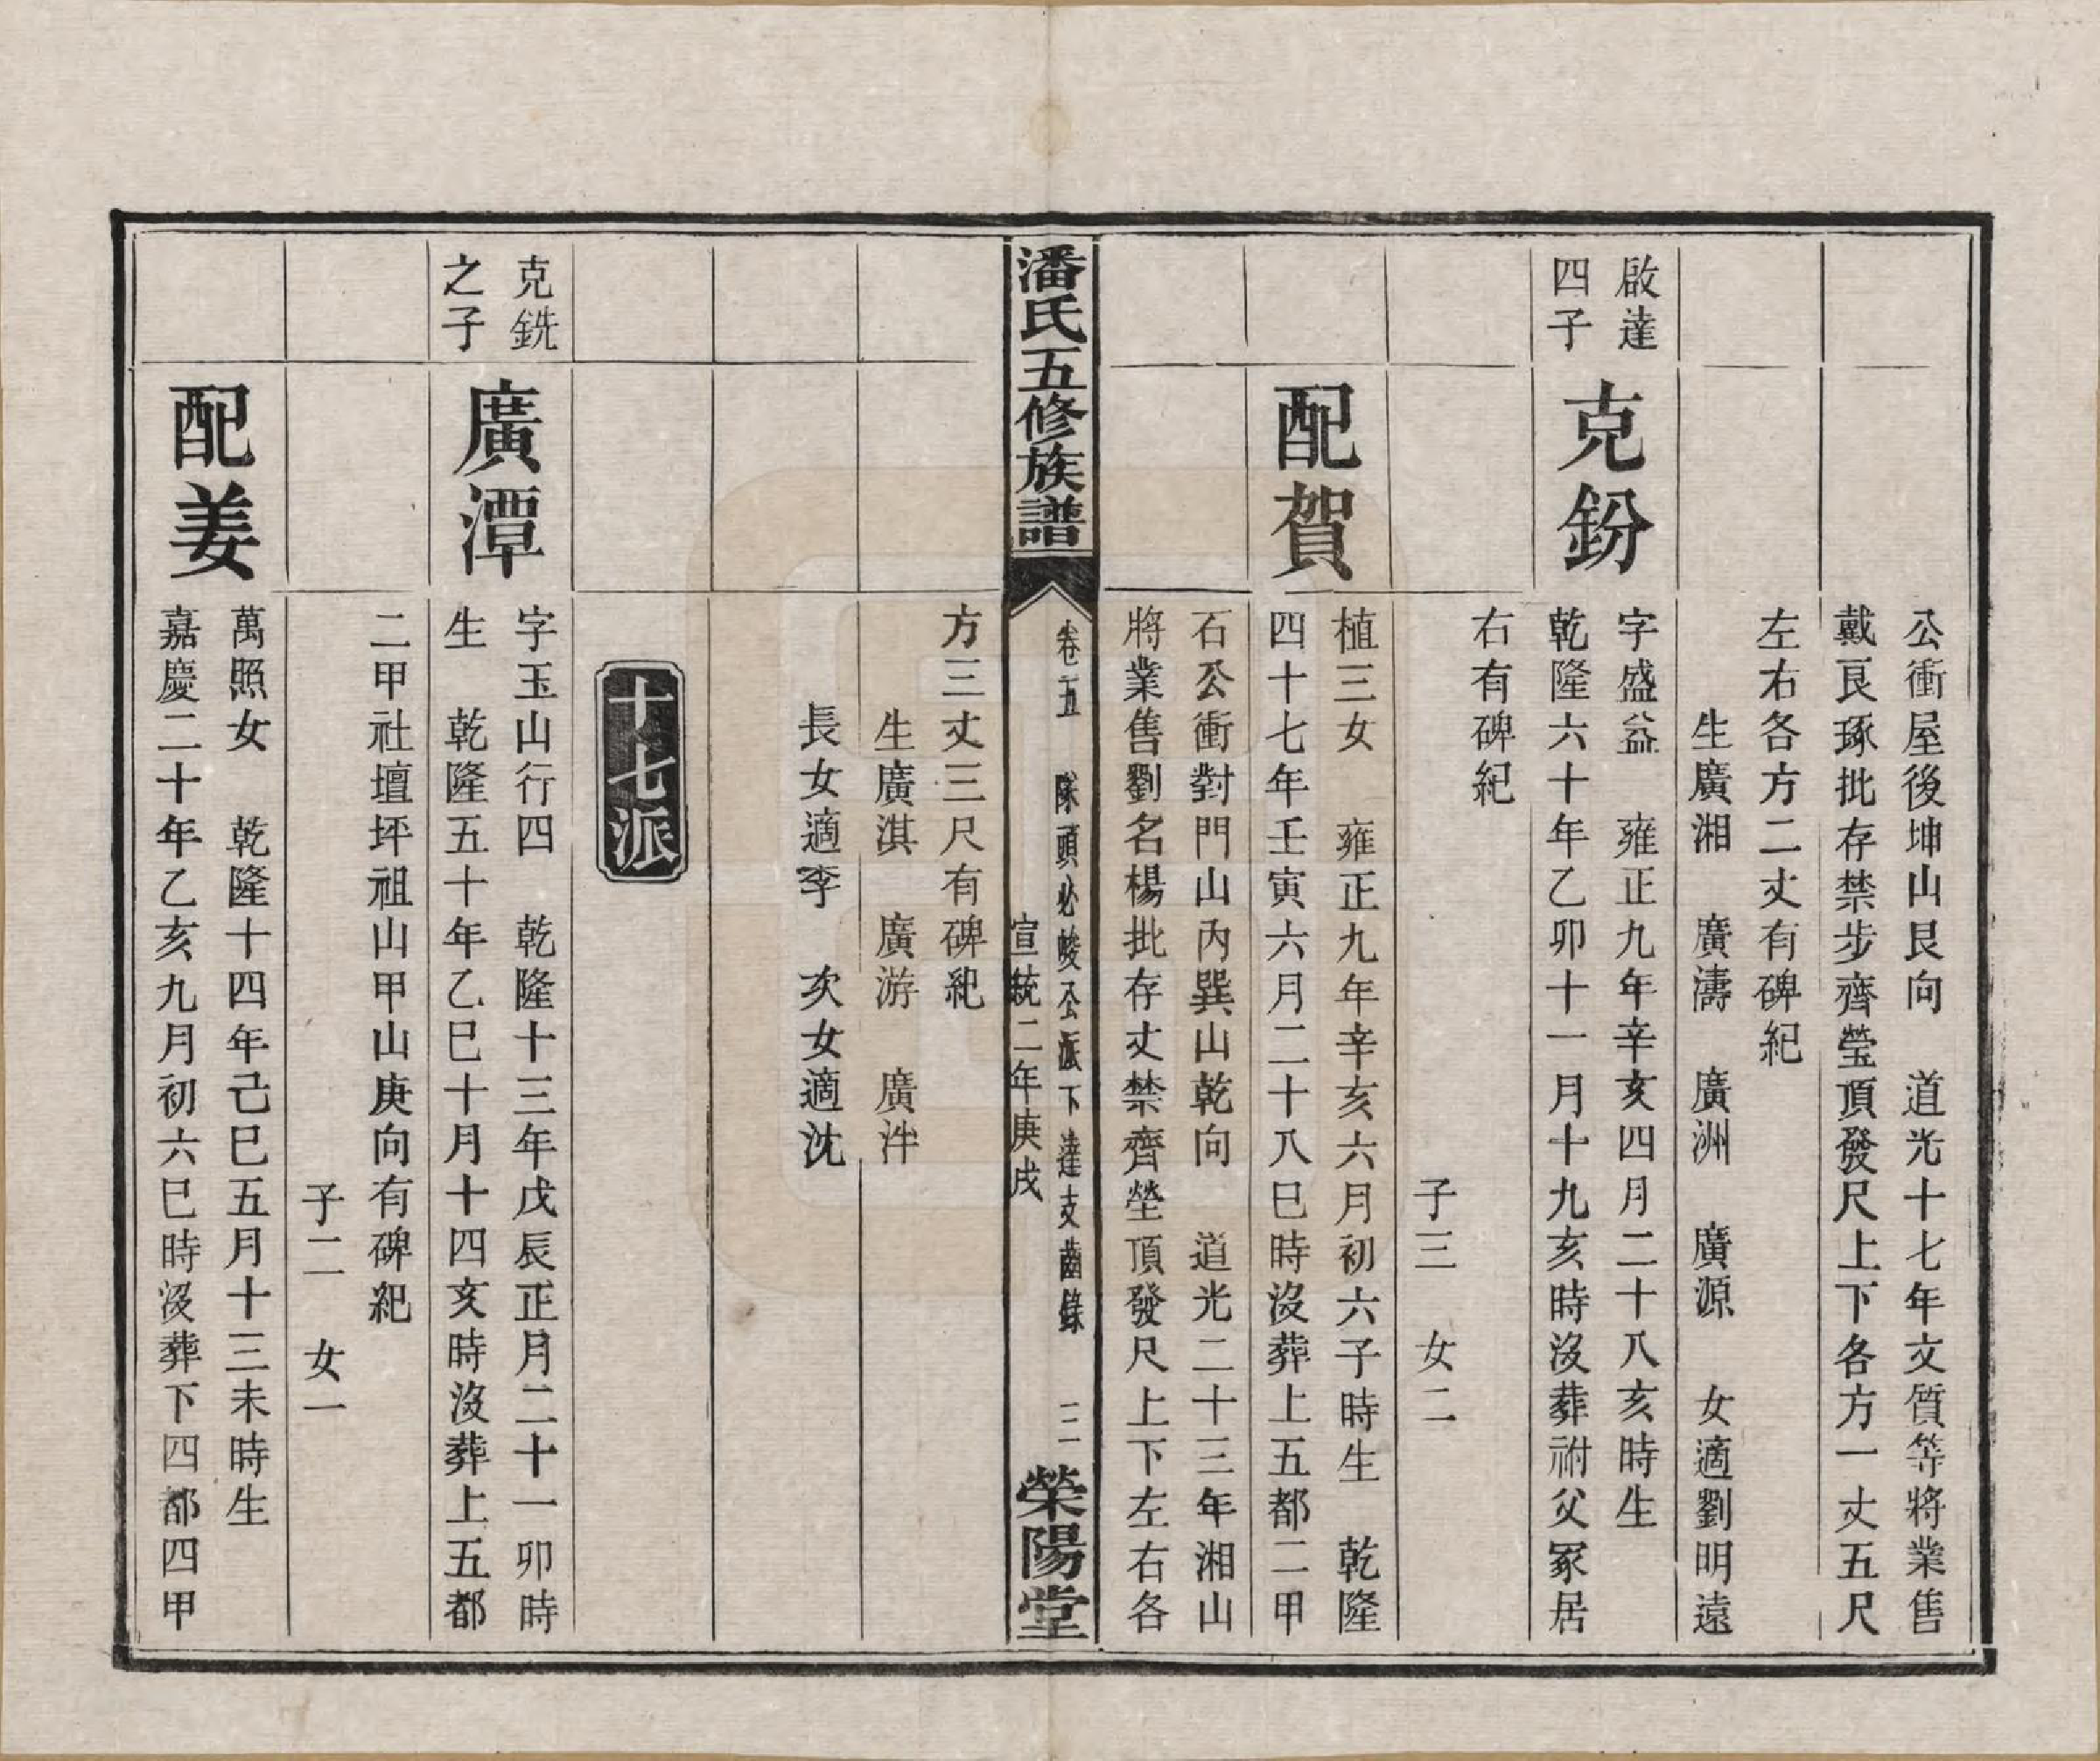 公衝屋後坤山艮向　道光十七年文質等將業售
戴艮琢批存禁步齊塋頂發尺上下各方一丈五尺
左右各方二丈有碑紀
生廣湘　廣濤　廣洲　廣源　女適劉明遠
啟達
四子
克鈖
字盛益　雍正九年辛亥四月二十八亥時生
乾隆六十年乙卯十一月十九亥時沒葬祔父冢居
右有碑紀
子三　女二
配賀
植三女　雍正九年辛亥六月初六子時生　乾隆
四十七年壬寅六月二十八巳時沒葬上五都二甲
石公衝對門山內巽山乾向　道光二十三年湘山
將業售劉名楊批存丈禁齊塋頂發尺上下左右各
潘氏五修族譜
卷五　陎頭必峻公派下達支齒錄　二
宣統二年庚戌
滎陽堂
方三丈三尺有碑紀
生廣淇　廣游　廣泮
長女適李　次女適沈
十七派
克銑
之子
廣潭
字玉山行四　乾隆十三年戊辰正月二十一卯時
生　乾隆五十年乙巳十月十四亥時沒葬上五都
二甲社壇坪祖山甲山庚向有碑紀
子二　女一
配姜
萬照女　乾隆十四年己巳五月十三未時生
嘉慶二十年乙亥九月初六巳時沒葬下四都四甲